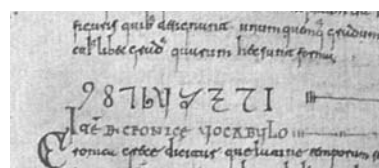 figuris quib; designant unumquenq; gradum
libet quarum hec sunt forma
9 8 7 6 5 4 3 2 1
DE CRONICE VOCABULO
Cronica grece dicitur que latine temporum